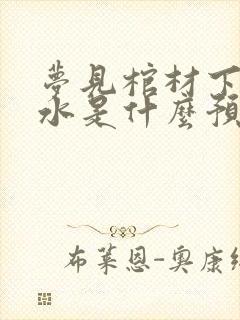 夢見棺材下
水是什麼預
布萊恩-奧康納